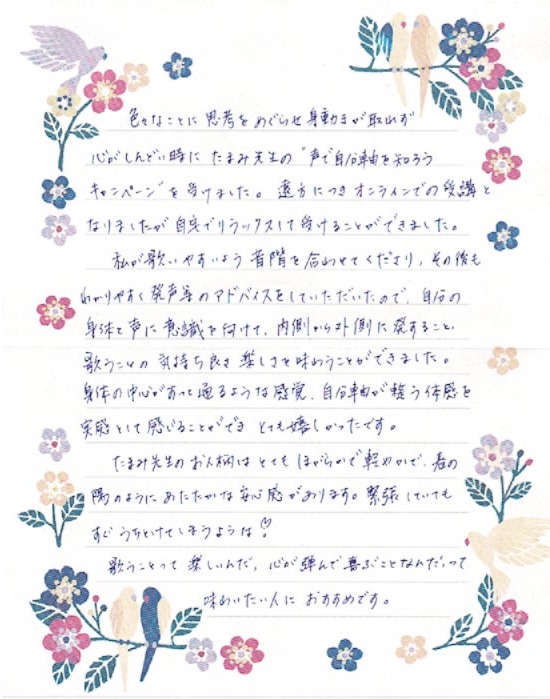 色々なことに思考をめぐらせ身動きが取れず
心がしんどい時に たまみ先生の "声で自分軸を知ろう
キャンペーン" を受けました。遠方につきオンラインでの受講と
なりましたが自宅でリラックスして受けることができました。
私が歌いやすいよう音階を合わせてくださり、その後も
わかりやすく発声等のアドバイスをしていただいたので、自分の
身体と声に意識を向けて、内側から外側に発すること、
歌うことの気持ち良さ楽しさを味わうことができました。
身体の中心がすっと通るような感覚、自分軸が整う体感を
実感として感じることができ とても嬉しかったです。
たまみ先生のお人柄はとても ほがらかで軽やかで、春の
陽のようにあたたかな安心感があります。緊張していても
すぐ うちとけてしまうような♡!
歌うことって 楽しいんだ、心が弾んで喜ぶことなんだ、って
味わいたい人に おすすめです。